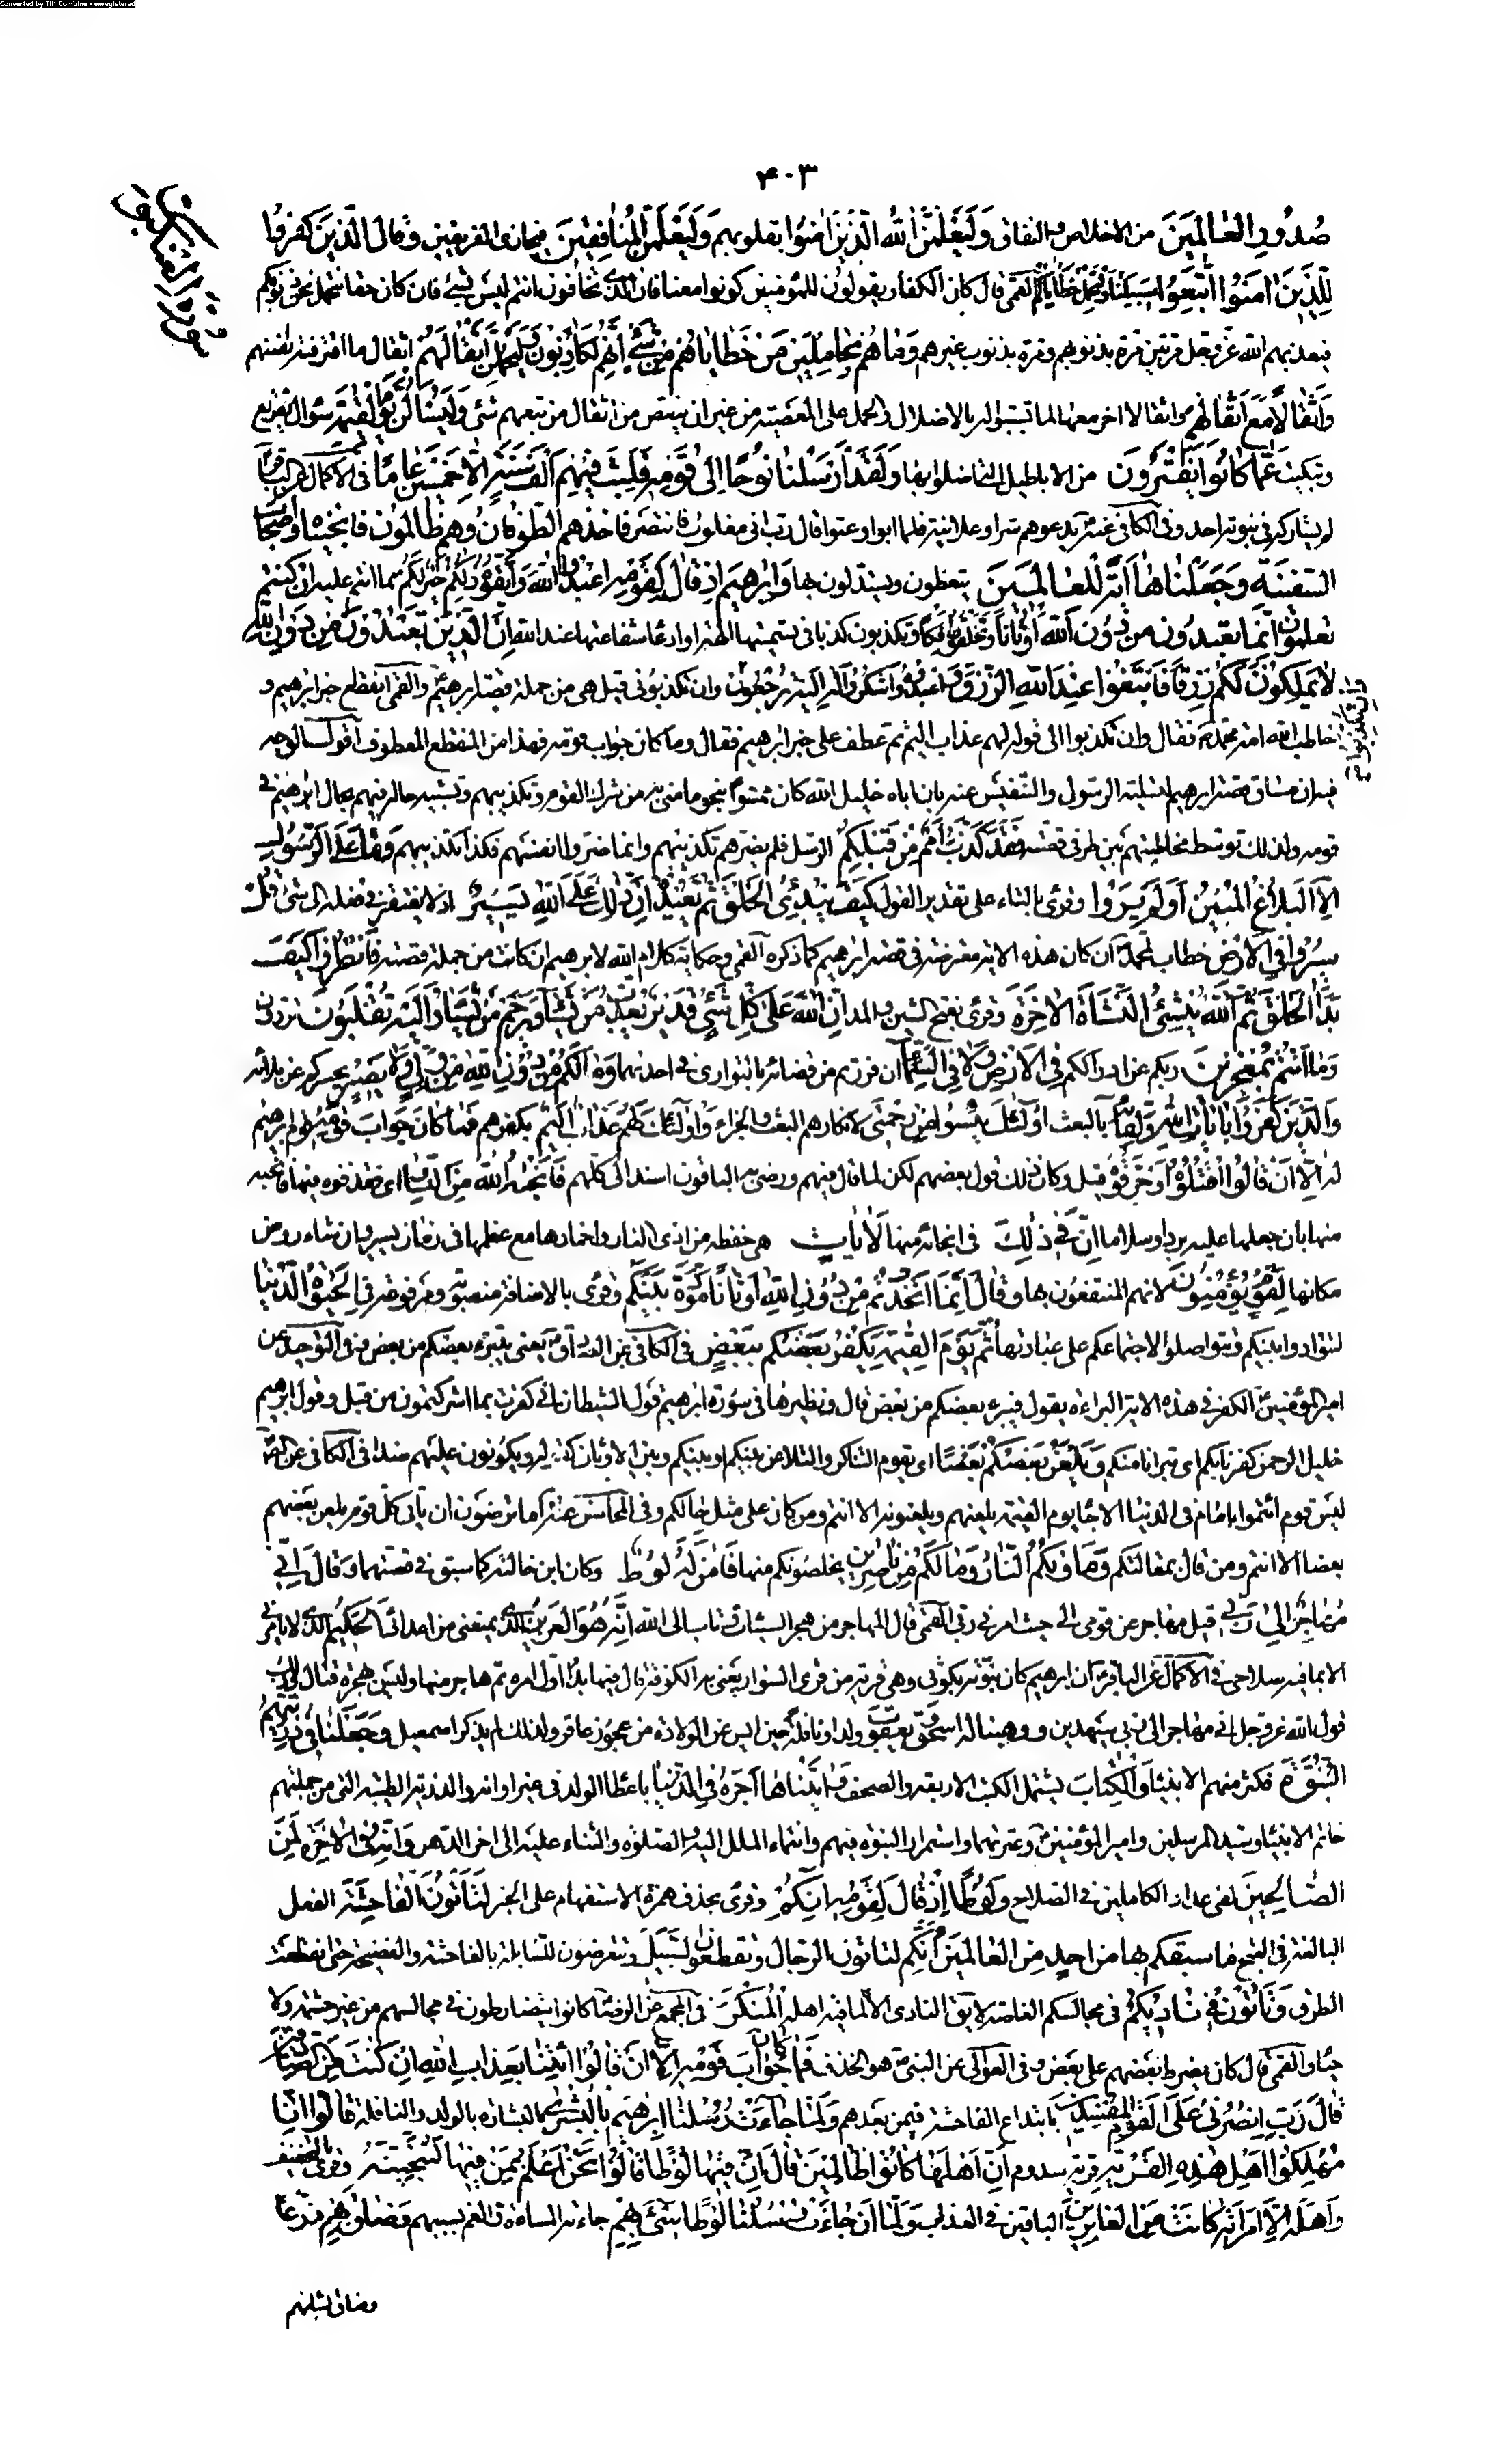 Converted by Tiff Combine - unregistered
۴۰۳
سورة العنكبوت
صُدُورِ الْعٰالَمِينَ من الاخلاص والنفاق وَلَيَعْلَمَنَّ اللّٰهُ الَّذِينَ اٰمَنُوا بقلوبهم وَلَيَعْلَمَنَّ الْمُنٰافِقِينَ فيجازى الفريقين وَقٰالَ الَّذِينَ كَفَرُوا
لِلَّذِينَ اٰمَنُوا اتَّبِعُوا سَبِيلَنٰا وَلْنَحْمِلْ خَطٰايٰاكُمْ القمى قال كان الكفار يقولون للمؤمنين كونوا معنا فان الذى تخافون انتم ليس بشىء فان كان حقا نتحمل نحن ذنوبكم
فيعذبهم الله عز وجل مرتين مرة بذنوبهم ومرة بذنوب غيرهم وَمٰا هُمْ بِحٰامِلِينَ مِنْ خَطٰايٰاهُمْ مِنْ شَىْءٍ اِنَّهُمْ لَكٰاذِبُونَ وَلَيَحْمِلُنَّ اَثْقٰالَهُمْ اثقال ما اقترفته انفسهم
وَاَثْقٰالًا مَعَ اَثْقٰالِهِمْ واثقالا اخر معها لما تسببوا له بالاضلال والحمل على المعصية من غير ان ينقص من اثقال من تبعهم شئ وَلَيُسْئَلُنَّ يَوْمَ الْقِيٰمَةِ سؤال تقريع
وتبكيت عَمّٰا كٰانُوا يَفْتَرُونَ من الاباطيل التى اضلوا بها وَلَقَدْ اَرْسَلْنٰا نُوحًا اِلٰى قَوْمِهِ فَلَبِثَ فِيهِمْ اَلْفَ سَنَةٍ اِلّٰا خَمْسِينَ عٰامًا فى الاكمال عن الباقر
لم يشاركه فى نبوته احد وفى الكافى عنه يدعوهم سرا وعلانية فلما ابوا وعتوا قال رب انى مغلوب فانتصر فاخذهم الطُّوفٰانُ وَهُمْ ظٰالِمُونَ فَاَنْجَيْنٰاهُ وَاَصْحٰابَ
السَّفِينَةِ وَجَعَلْنٰاهٰا اٰيَةً لِلْعٰالَمِينَ يتعظون ويستدلون بها وَاِبْرٰهِيمَ اِذْ قٰالَ لِقَوْمِهِ اعْبُدُوا اللّٰهَ وَاتَّقُوهُ ذٰلِكُمْ خَيْرٌ لَكُمْ مما انتم عليه اِنْ كُنْتُمْ
تَعْلَمُونَ اِنَّمٰا تَعْبُدُونَ مِنْ دُونِ اللّٰهِ اَوْثٰانًا وَتَخْلُقُونَ اِفْكًا وتكذبون كذبا فى تسميتها الهة وادعاء شفاعتها عند الله اِنَّ الَّذِينَ تَعْبُدُونَ مِنْ دُونِ اللّٰهِ
لٰا يَمْلِكُونَ لَكُمْ رِزْقًا فَابْتَغُوا عِنْدَ اللّٰهِ الرِّزْقَ وَاعْبُدُوهُ وَاشْكُرُوا لَهُ اِلَيْهِ تُرْجَعُونَ وان تكذبونى قيل هى من جملة قصة ابرهيم والقمى انقطع خبر ابرهيم و
وان تكذبوا
خاطب الله امة محمد فقال وان تكذبوا الى قوله لهم عذاب اليم ثم عطف على خبر ابرهيم فقال وما كان جواب قومه فهذا من المنقطع المعطوف اقول لعل الوجه
فيه ان مساق قصة ابرهيم لتسلية الرسول والتنفيس عنه بان اباه خليل الله كان ممنوا بنحو ما منى به من شرك القوم وتكذيبهم وتشبيه حاله فيهم بحال ابرهيم فى
قومه ولذلك توسط مخاطبتهم بين طرفى قصته فَقَدْ كَذَّبَ اُمَمٌ مِنْ قَبْلِكُمْ الرسل فلم يضرهم تكذيبهم وانما ضروا انفسهم فكذا تكذيبهم وَمٰا عَلَى الرَّسُولِ
اِلَّا الْبَلٰاغُ الْمُبِينُ اَوَلَمْ يَرَوْا وقرئ بالتاء على تقدير القول كَيْفَ يُبْدِئُ اللّٰهُ الْخَلْقَ ثُمَّ يُعِيدُهُ اِنَّ ذٰلِكَ عَلَى اللّٰهِ يَسِيرٌ اذ لا يفتقر فى فعله الى شئ قُلْ
سِيرُوا فِى الْاَرْضِ خطاب لمحمد ان كان هذه الاية معترضة فى قصة ابرهيم كما ذكره القمى وحكاية كلام الله لابرهيم ان كانت من جملة قصته فَانْظُرُوا كَيْفَ
بَدَاَ الْخَلْقَ ثُمَّ اللّٰهُ يُنْشِئُ النَّشْاَةَ الْاٰخِرَةَ وقرئ بفتح الشين والمد اِنَّ اللّٰهَ عَلٰى كُلِّ شَىْءٍ قَدِيرٌ يُعَذِّبُ مَنْ يَشٰاءُ وَيَرْحَمُ مَنْ يَشٰاءُ وَاِلَيْهِ تُقْلَبُونَ تردون
وَمٰا اَنْتُمْ بِمُعْجِزِينَ ربكم عن ادراككم فِى الْاَرْضِ وَلٰا فِى السَّمٰاءِ ان فررتم من قضائه بالتوارى فى احديهما وَمٰا لَكُمْ مِنْ دُونِ اللّٰهِ مِنْ وَلِىٍّ وَلٰا نَصِيرٍ يحرسكم عن بلائه
وَالَّذِينَ كَفَرُوا بِاٰيٰاتِ اللّٰهِ وَلِقٰائِهِ بالبعث اُولٰئِكَ يَئِسُوا مِنْ رَحْمَتِى لانكارهم البعث والجزاء وَاُولٰئِكَ لَهُمْ عَذٰابٌ اَلِيمٌ بكفرهم فَمٰا كٰانَ جَوٰابَ قَوْمِهِ قوم ابرهيم
له اِلّٰا اَنْ قٰالُوا اقْتُلُوهُ اَوْ حَرِّقُوهُ قيل وكان ذلك قول بعضهم لكن لما قال فيهم ورضى به الباقون اسند الى كلهم فَاَنْجٰاهُ اللّٰهُ مِنَ النّٰارِ اى فقذفوه فيها فانجيه
منها بان جعلها عليه بردا وسلاما اِنَّ فِى ذٰلِكَ فى انجائه منها لَاٰيٰاتٍ هى حفظه من اذى النار واخمادها مع عظمها فى زمان يسير وانشاء روض
مكانها لِقَوْمٍ يُؤْمِنُونَ لانهم المنتفعون بها وَقٰالَ اِنَّمَا اتَّخَذْتُمْ مِنْ دُونِ اللّٰهِ اَوْثٰانًا مَوَدَّةَ بَيْنِكُمْ وقرئ بالاضافة منصوبة ومرفوعة فِى الْحَيٰوةِ الدُّنْيٰا
لتتوادوا بينكم وتتواصلوا لاجتماعكم على عبادتها ثُمَّ يَوْمَ الْقِيٰمَةِ يَكْفُرُ بَعْضُكُمْ بِبَعْضٍ فى الكافى عن الصادق يعنى يتبرء بعضكم من بعض وفى التوحيد عن
امير المؤمنين الكفر فى هذه الاية البراءة يقول فيبرء بعضكم من بعض قال ونظيرها فى سورة ابرهيم قول الشيطان انى كفرت بما اشركتمون من قبل وقول ابرهيم
خليل الرحمن كفرنا بكم اى تبرانا منكم وَيَلْعَنُ بَعْضُكُمْ بَعْضًا اى يقوم التناكر والتلاعن بينكم او بينكم وبين الاوثان كقوله ويكونون عليهم ضدا فى الكافى عن الصادق
ليس قوم ائتموا بامام فى الدنيا الا جاء يوم القيمة يلعنهم ويلعنونه الا انتم ومن كان على مثل حالكم وفى المحاسن عنه اما ترضون ان ياتى كل قوم يلعن بعضهم
بعضا الا انتم ومن قال بمقالتكم وَمَاْوٰاكُمُ النّٰارُ وَمٰا لَكُمْ مِنْ نٰاصِرِينَ يخلصونكم منها فَاٰمَنَ لَهُ لُوطٌ وكان ابن خالته كما سبق فى قصتهما وَقٰالَ اِنِّى
مُهٰاجِرٌ اِلٰى رَبِّى قيل مهاجر عن قومى الى حيث امرنى ربى القمى قال المهاجر من هجر السيئات وتاب الى الله اِنَّهُ هُوَ الْعَزِيزُ الذى يمنعنى من اعدائى الْحَكِيمُ الذى لا يامر
الا بما فيه صلاحى فى الاكمال عن الباقر ان ابرهيم كان نبوته بكوثى وهى قرية من قرى السواد يعنى به الكوفة قال فيها بدا اول امره ثم هاجر منها وليس بهجرة قتال وذلك
قول الله عز وجل انى مهاجر الى ربى سيهدين وَوَهَبْنٰا لَهُ اِسْحٰقَ وَيَعْقُوبَ ولدا ونافلة حين ايس عن الولادة من عجوز عاقر ولذلك لم يذكر اسمعيل وَجَعَلْنٰا فِى ذُرِّيَّتِهِ
النُّبُوَّةَ فكثر منهم الانبياء وَالْكِتٰابَ يشمل الكتب الاربعة والصحف وَاٰتَيْنٰاهُ اَجْرَهُ فِى الدُّنْيٰا باعطاء الولد فى غير اوانه والذرية الطيبة التى من جملتهم
خاتم الانبياء وسيد المرسلين وامير المؤمنين وعترتهما واستمرار النبوة فيهم وانتماء الملل اليه والصلوة والثناء عليه الى اخر الدهر وَاِنَّهُ فِى الْاٰخِرَةِ لَمِنَ
الصّٰالِحِينَ لفى عداد الكاملين فى الصلاح وَلُوطًا اِذْ قٰالَ لِقَوْمِهِ اِنَّكُمْ وقرئ بحذف همزة الاستفهام على الخبر لَتَاْتُونَ الْفٰاحِشَةَ الفعلة
البالغة فى القبح مٰا سَبَقَكُمْ بِهٰا مِنْ اَحَدٍ مِنَ الْعٰالَمِينَ اَئِنَّكُمْ لَتَاْتُونَ الرِّجٰالَ وَتَقْطَعُونَ السَّبِيلَ وتتعرضون للسابلة بالفاحشة والفضيحة حتى انقطعت
الطرق وَتَاْتُونَ فِى نٰادِيكُمُ فى مجالسكم الغاصة لا يق النادى الا لما فيه اهله الْمُنْكَرَ فى المجمع عن الرضا كانوا يتضارطون فى مجالسهم من غير حشمة ولا
حياء والقمى قال كان يضرط بعضهم على بعض وفى العوالى عن النبى هو الخذف فَمٰا كٰانَ جَوٰابَ قَوْمِهِ اِلّٰا اَنْ قٰالُوا ائْتِنٰا بِعَذٰابِ اللّٰهِ اِنْ كُنْتَ مِنَ الصّٰادِقِينَ
قٰالَ رَبِّ انْصُرْنِى عَلَى الْقَوْمِ الْمُفْسِدِينَ بابتداع الفاحشة فيمن بعدهم وَلَمّٰا جٰاءَتْ رُسُلُنٰا اِبْرٰهِيمَ بِالْبُشْرٰى بالبشارة بالولد والنافلة قٰالُوا اِنّٰا
مُهْلِكُوا اَهْلِ هٰذِهِ الْقَرْيَةِ قرية سدوم اِنَّ اَهْلَهٰا كٰانُوا ظٰالِمِينَ قٰالَ اِنَّ فِيهٰا لُوطًا قٰالُوا نَحْنُ اَعْلَمُ بِمَنْ فِيهٰا لَنُنَجِّيَنَّهُ وقرئ بالتخفيف
وَاَهْلَهُ اِلَّا امْرَاَتَهُ كٰانَتْ مِنَ الْغٰابِرِينَ الباقين فى العذاب وَلَمّٰا اَنْ جٰاءَتْ رُسُلُنٰا لُوطًا سِىءَ بِهِمْ جاءته المساءة والغم بسببهم وَضٰاقَ بِهِمْ ذَرْعًا
وضاق بشانهم